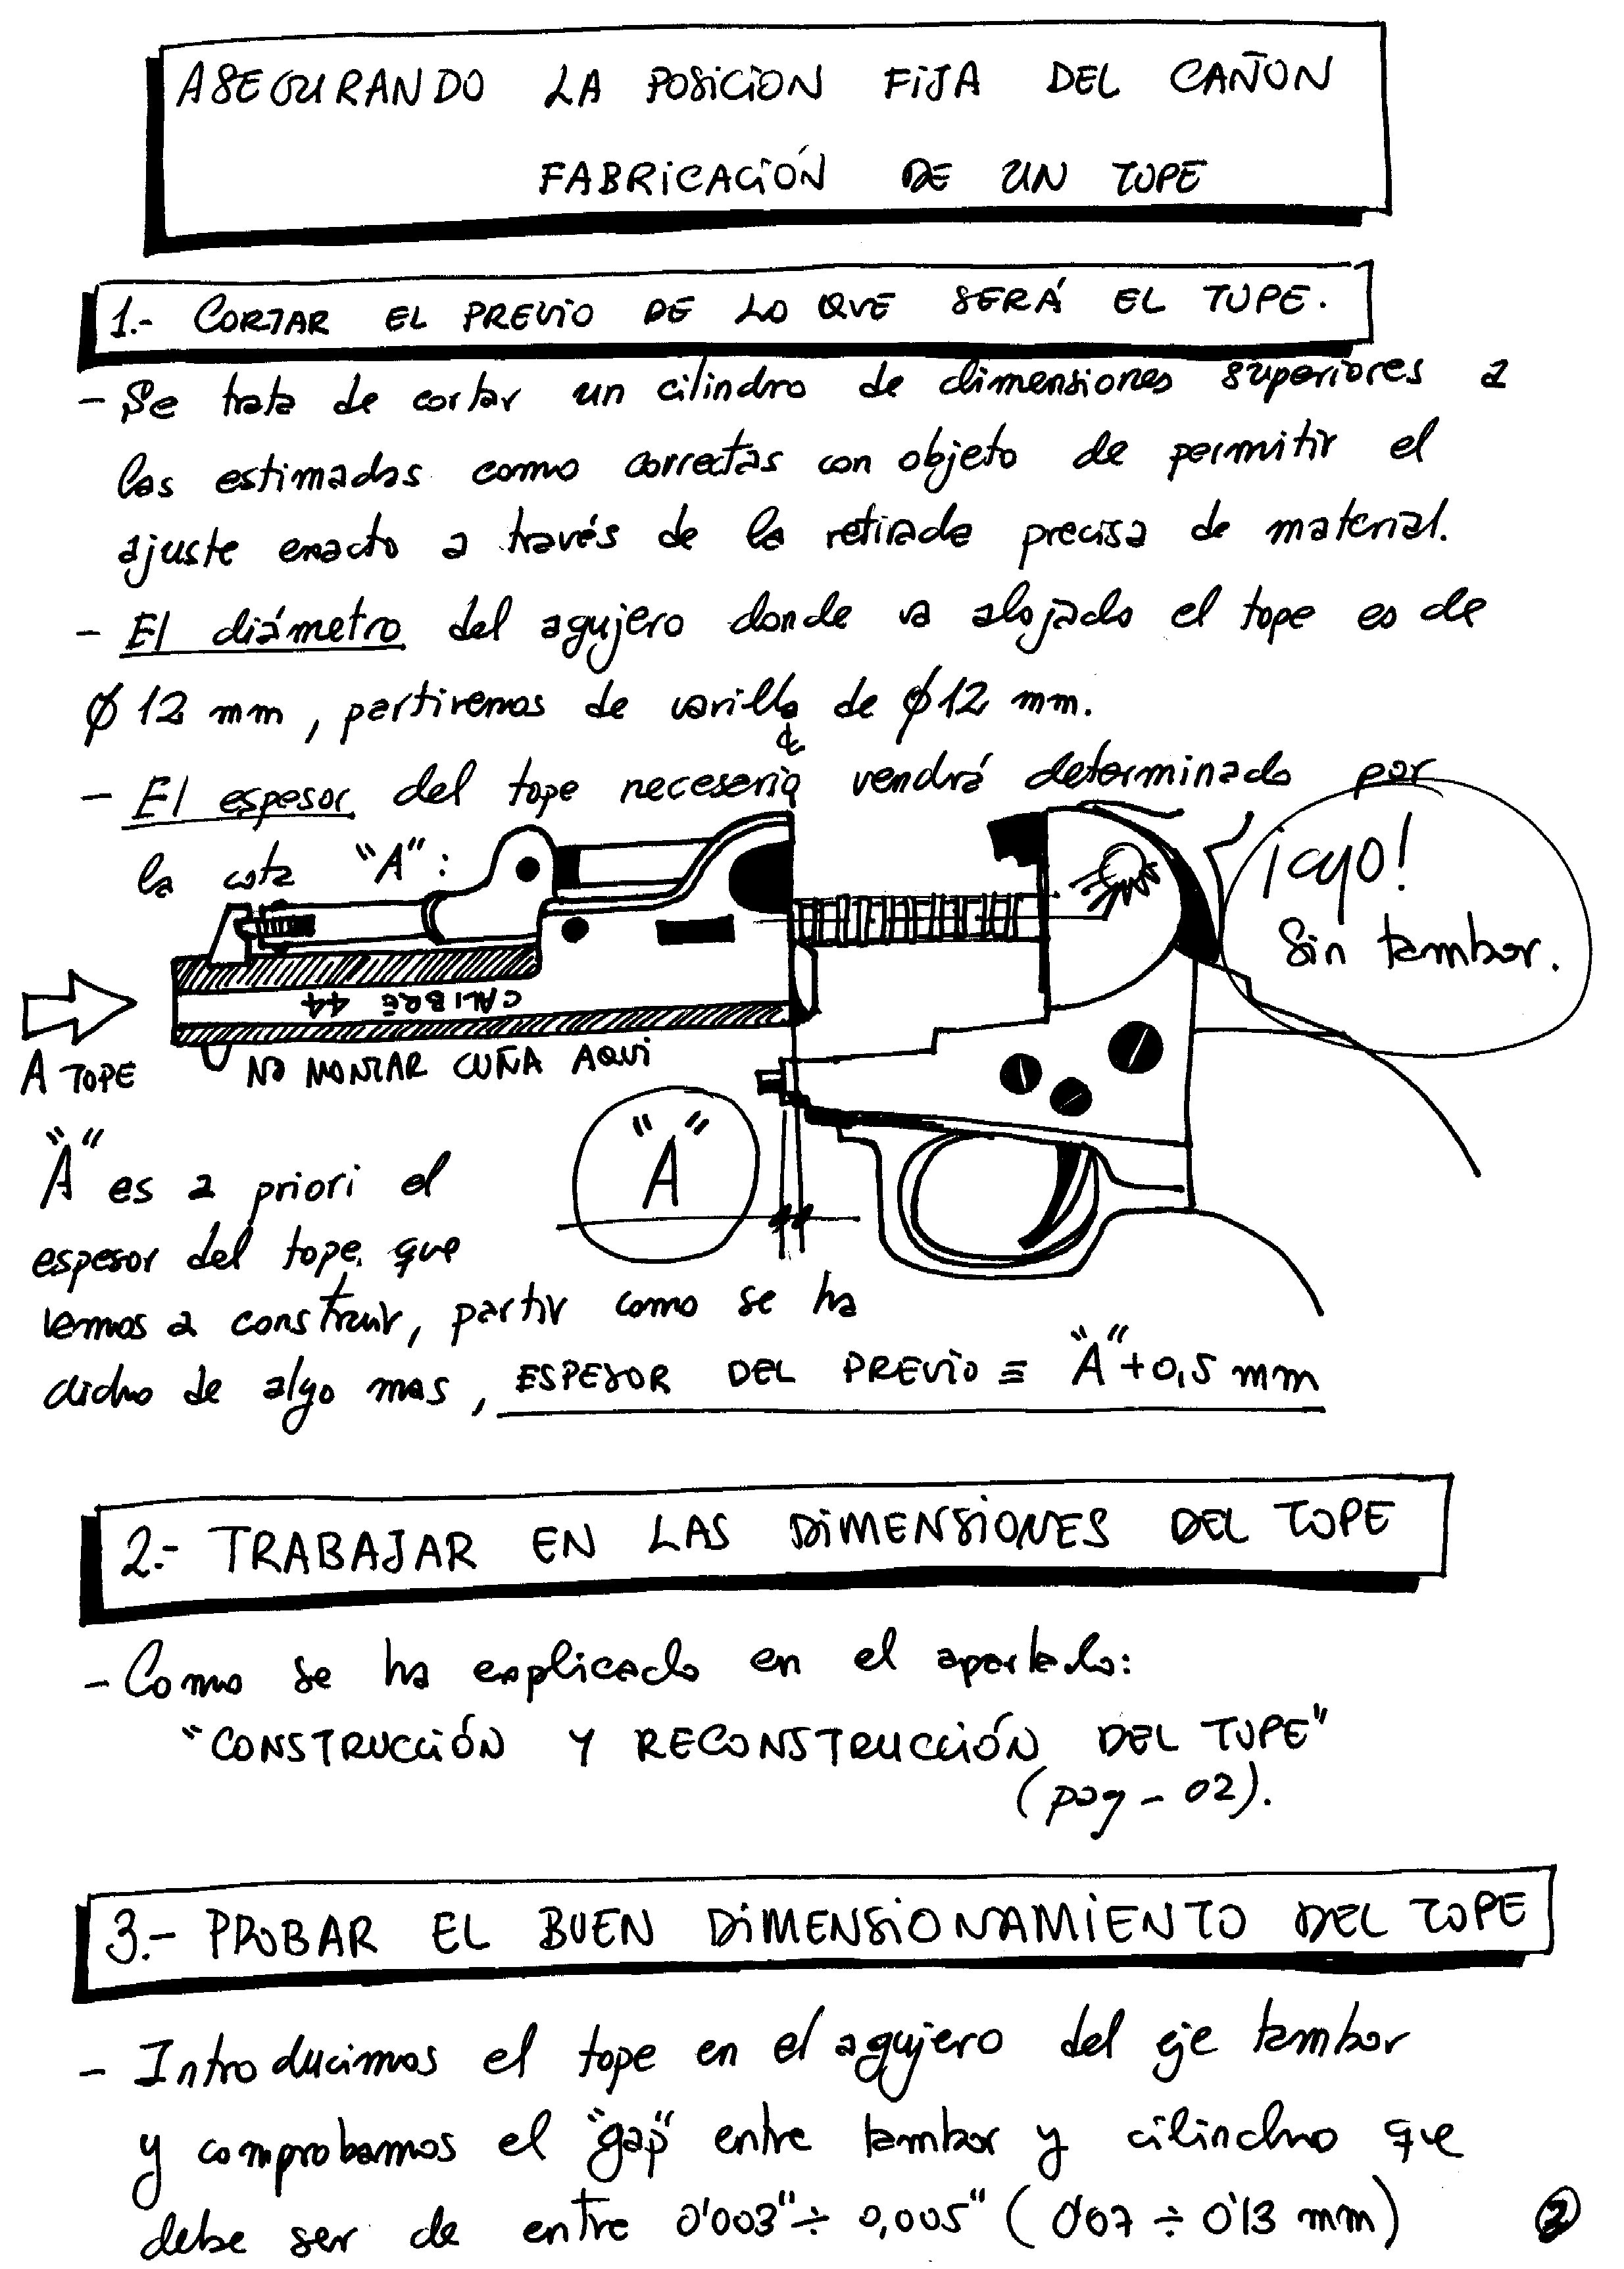 ASEGURANDO LA POSICION FIJA DEL CAÑON
FABRICACIÓN DE UN TOPE
1.- CORTAR EL PREVIO DE LO QUE SERÁ EL TOPE.
- Se trata de cortar un cilindro de dimensiones superiores a
las estimadas como correctas con objeto de permitir el
ajuste exacto a través de la retirada precisa de material.
- El diámetro del agujero donde va alojado el tope es de
ϕ 12 mm, partiremos de varilla de ϕ 12 mm.
- El espesor del tope necesario vendrá determinado por
la cota "A":
¡ojo!
Sin tambor.
CALIBRE 44
A TOPE
NO MONTAR CUÑA AQUI
"A"
"A" es a priori el
espesor del tope que
vamos a construir, partir como se ha
dicho de algo mas, ESPESOR DEL PREVIO ≡ "A"+0,5 mm
2.- TRABAJAR EN LAS DIMENSIONES DEL TOPE
- Como se ha explicado en el apartado:
"CONSTRUCCIÓN Y RECONSTRUCCIÓN DEL TOPE"
(pag - 02).
3.- PROBAR EL BUEN DIMENSIONAMIENTO DEL TOPE
- Introducimos el tope en el agujero del eje tambor
y comprobamos el "gap" entre tambor y cilindro que
debe ser de entre 0'003" ÷ 0,005" (0'07 ÷ 0'13 mm)